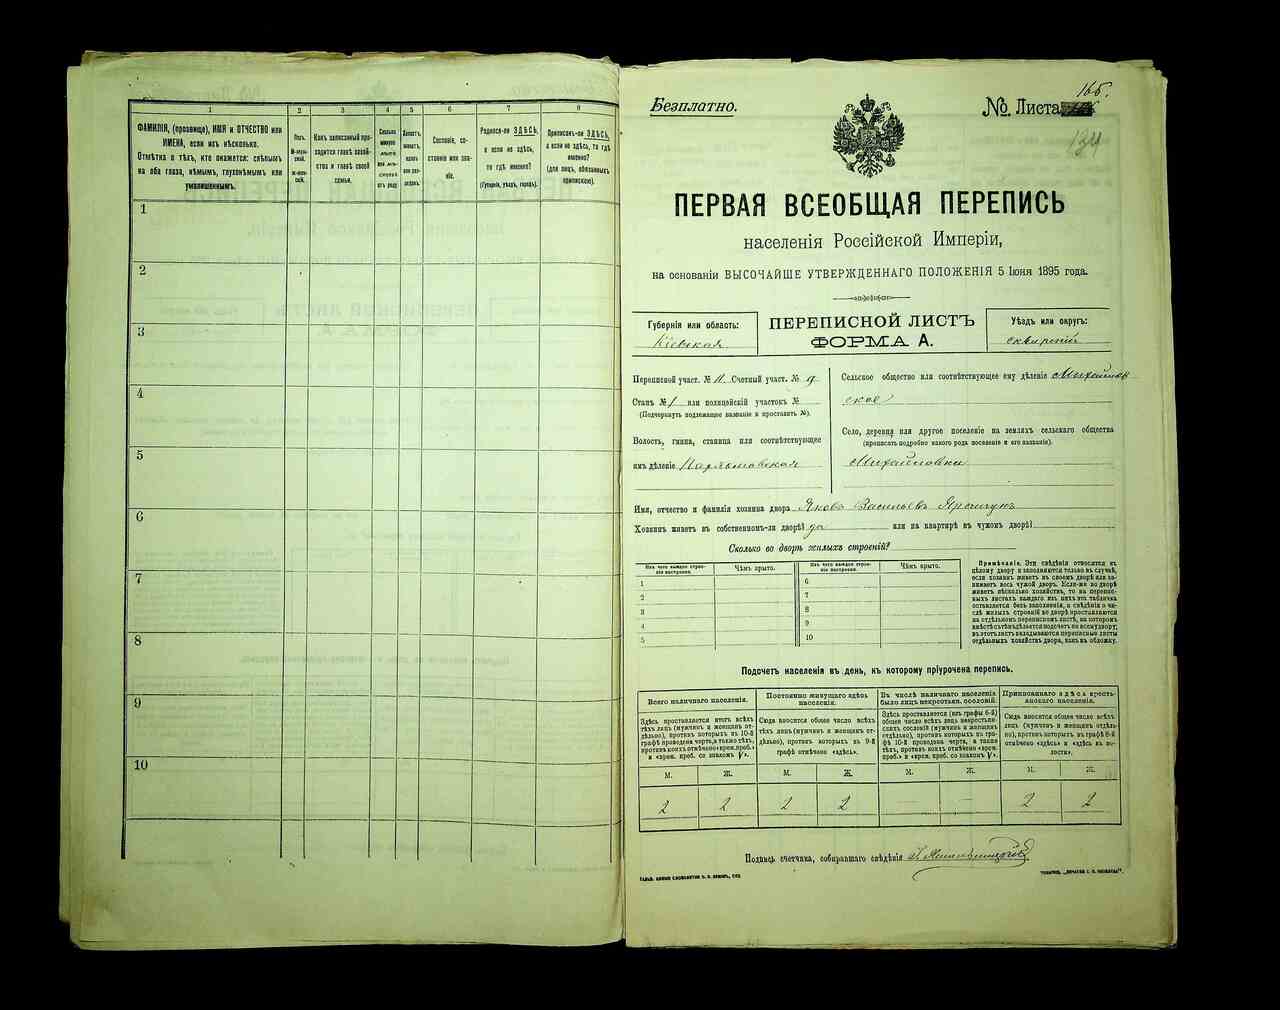 1 2 3 4 5 6 7 8
ФАМИЛІЯ, (прозвище), ИМЯ и ОТЧЕСТВО или
ИМЕНА, если ихъ нѣсколько.
Отмѣтка о тѣхъ, кто окажется: слѣпымъ
на оба глаза, нѣмымъ, глухонѣмымъ или
умалишеннымъ.
Полъ.
М-мужской.
Ж-женскій.
Какъ записанный приходится
главѣ хозяйства
и главѣ своей
семьи.
Сословіе, состояніе
или званіе.
Родился-ли ЗДѢСЬ,
а если не здѣсь,
то гдѣ именно?
(Губернія, уѣздъ, городъ).
Приписанъ-ли ЗДѢСЬ,
а если не здѣсь, то гдѣ
именно?
(для лицъ, обязанныхъ
припискою).
1
2
3
4
5
6
7
8
9
10
166.
Безплатно.
№ Листа
134
ПЕРВАЯ ВСЕОБЩАЯ ПЕРЕПИСЬ
населенія Россійской Имперіи,
на основаніи ВЫСОЧАЙШЕ УТВЕРЖДЕННАГО ПОЛОЖЕНІЯ 5 Іюня 1895 года.
Губернія или область:
Кіевская
ПЕРЕПИСНОЙ ЛИСТЪ
ФОРМА А.
Уѣздъ или округъ:
Переписной участ. № 11. Счетный участ. № 9
Станъ № 1 или полицейскій участокъ №
(Подчеркнуть подлежащее названіе и проставить №).
Волость, гмина, станица или соотвѣтствующее
имъ дѣленіе
Сельское общество или соотвѣтствующее ему дѣленіе Михайловское
Село, деревня или другое поселеніе на земляхъ сельскаго общества
(прописать подробно какого рода поселеніе и его названіе).
Михайловка
Имя, отчество и фамилія хозяина двора Яковъ Васильевъ
Хозяинъ живетъ въ собственномъ-ли дворѣ? да или на квартирѣ въ чужомъ дворѣ?
Сколько во дворѣ жилыхъ строеній?
Изъ чего каждое строеніе построено. Чѣмъ крыто. Изъ чего каждое строеніе построено. Чѣмъ крыто.
1 6
2 7
3 8
4 9
5 10
Примѣчаніе. Эти свѣдѣнія относятся къ
цѣлому двору и заполняются только въ случаѣ,
если хозяинъ живетъ въ своемъ дворѣ или занимаетъ
весь чужой дворъ. Если-же во дворѣ
живетъ нѣсколько хозяйствъ, то на переписныхъ
листахъ каждаго изъ нихъ эта табличка
оставляется безъ заполненія, а свѣдѣнія о числѣ
жилыхъ строеній во дворѣ проставляются
на отдѣльномъ переписномъ листѣ, на которомъ
вмѣстѣ съ тѣмъ дѣлается подсчетъ по всему двору;
въ этотъ листъ вкладываются переписные листы
отдѣльныхъ хозяйствъ двора, какъ въ обложку.
Подсчетъ населенія въ день, къ которому пріурочена перепись.
Всего наличнаго населенія.
Здѣсь проставляется итогъ всѣхъ
тѣхъ лицъ (мужчинъ и женщинъ отдѣльно),
противъ которыхъ въ 10-й
графѣ проведена черта, а также тѣхъ,
противъ коихъ отмѣчено «врем. преб.»
и «врем. преб. со знакомъ V».
Постоянно живущаго здѣсь
населенія.
Сюда вносится общее число всѣхъ
тѣхъ лицъ (мужчинъ и женщинъ отдѣльно),
противъ которыхъ въ 9-й
графѣ отмѣчено «здѣсь».
Въ числѣ наличнаго населенія
было лицъ некрестьян. сословій.
Здѣсь проставляется (изъ графы 6-й)
общее число всѣхъ лицъ некрестьянскихъ
сословій (мужчинъ и женщинъ
отдѣльно), противъ которыхъ въ графѣ
10-й проведена черта, а также
тѣхъ, противъ коихъ отмѣчено «врем.
преб.» и «врем. преб. со знакомъ V».
Приписаннаго здѣсь крестьянскаго
населенія.
Сюда вносится общее число всѣхъ
лицъ (мужчинъ и женщинъ отдѣльно),
противъ которыхъ въ графѣ 8-й
отмѣчено «здѣсь» и «здѣсь въ волости».
М. Ж. М. Ж. М. Ж. М. Ж.
2 2 2 2 — — 2 2
Подпись счетчика, собиравшаго свѣдѣнія